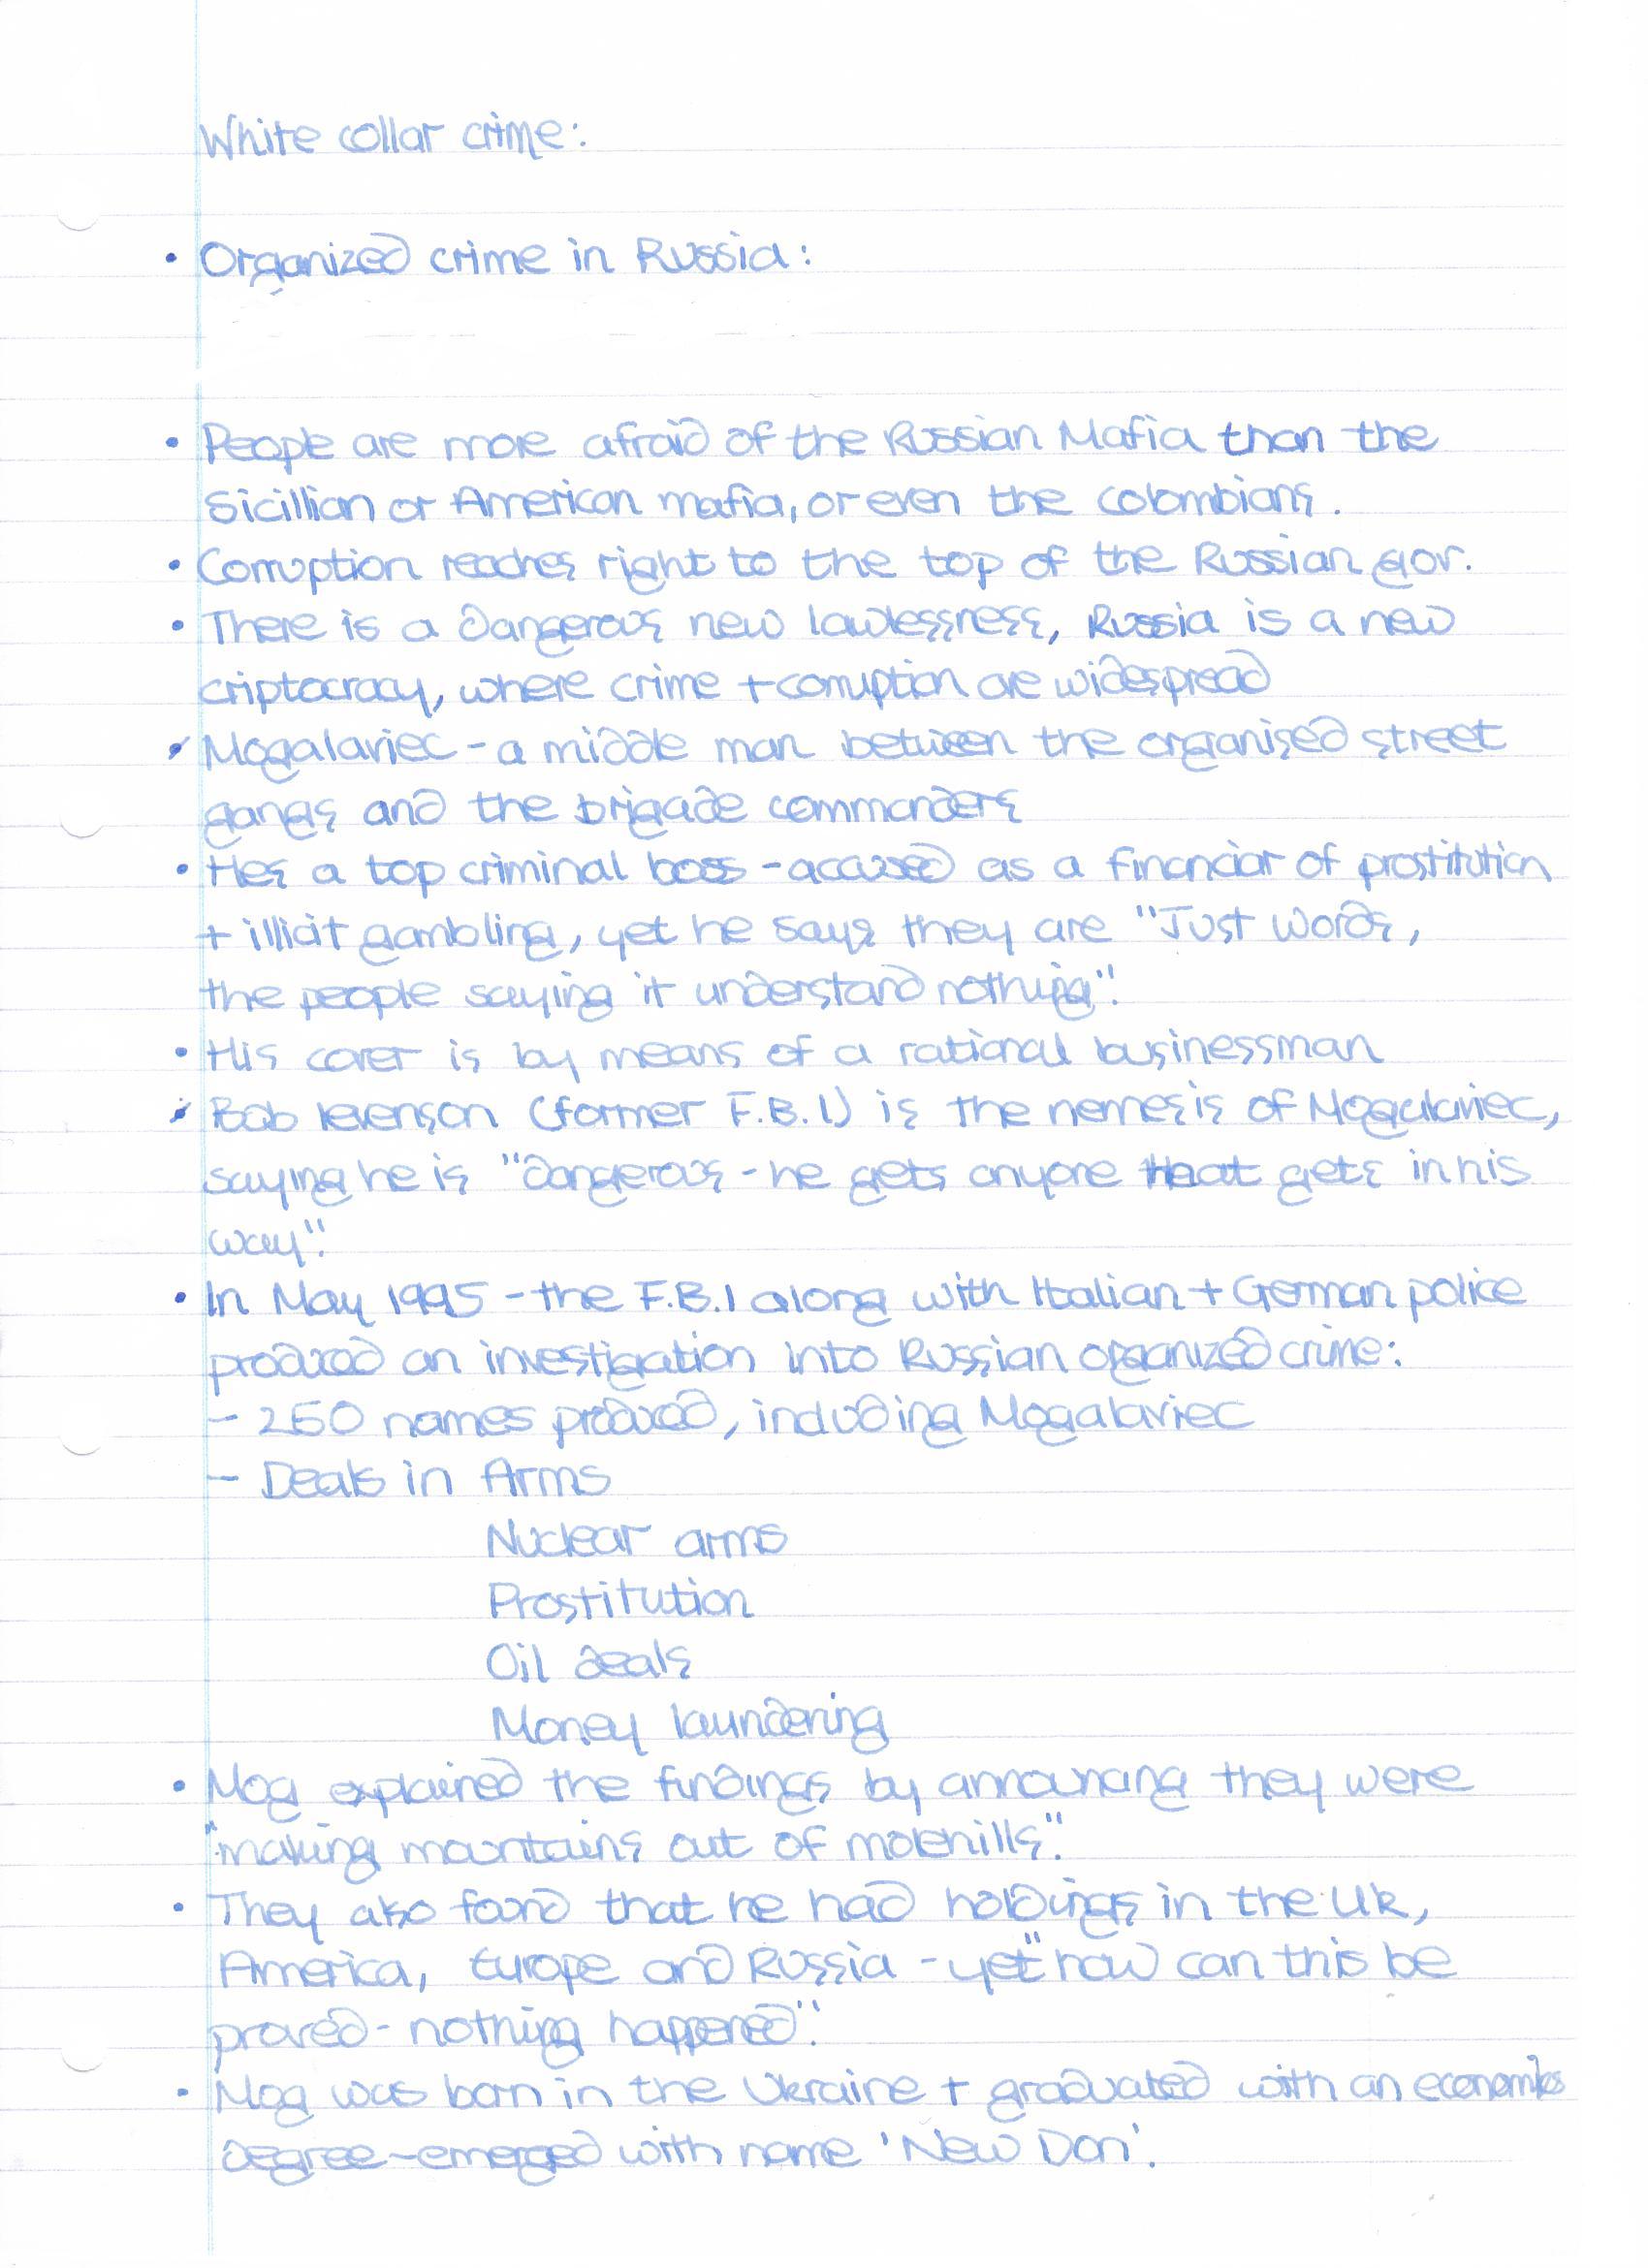 White collar crime:
• Organized crime in Russia:
• People are more afraid of the Russian Mafia than the
Sicillian or American mafia, or even the colombians.
• Corruption reaches right to the top of the Russian gov.
• There is a dangerous new lawlessness, Russia is a new
criptocracy, where crime + corruption are widespread
• Mogalaviec - a middle man between the organised street
gangs and the brigade commanders
• Hes a top criminal boss - accused as a financiar of prostitution
+ illicit gambling, yet he says they are "Just words,
the people saying it understand nothing".
• His cover is by means of a rational businessman
• Bob levenson (former F.B.I) is the nemesis of Mogalaviec,
saying he is "dangerous - he gets anyone that gets in his
way".
• In May 1995 - the F.B.I along with Italian + German police
produced an investigation into Russian organized crime:
- 250 names produced, including Mogalaviec
- Deals in Arms
Nuclear arms
Prostitution
Oil deals
Money laundering
• Mog explained the findings by announcing they were
"making mountains out of molehills".
• They also found that he had holdings in the UK,
America, Europe and Russia - yet "how can this be
proved - nothing happened".
• Mog was born in the Ukraine + graduated with an economics
degree - emerged with name 'New Don'.